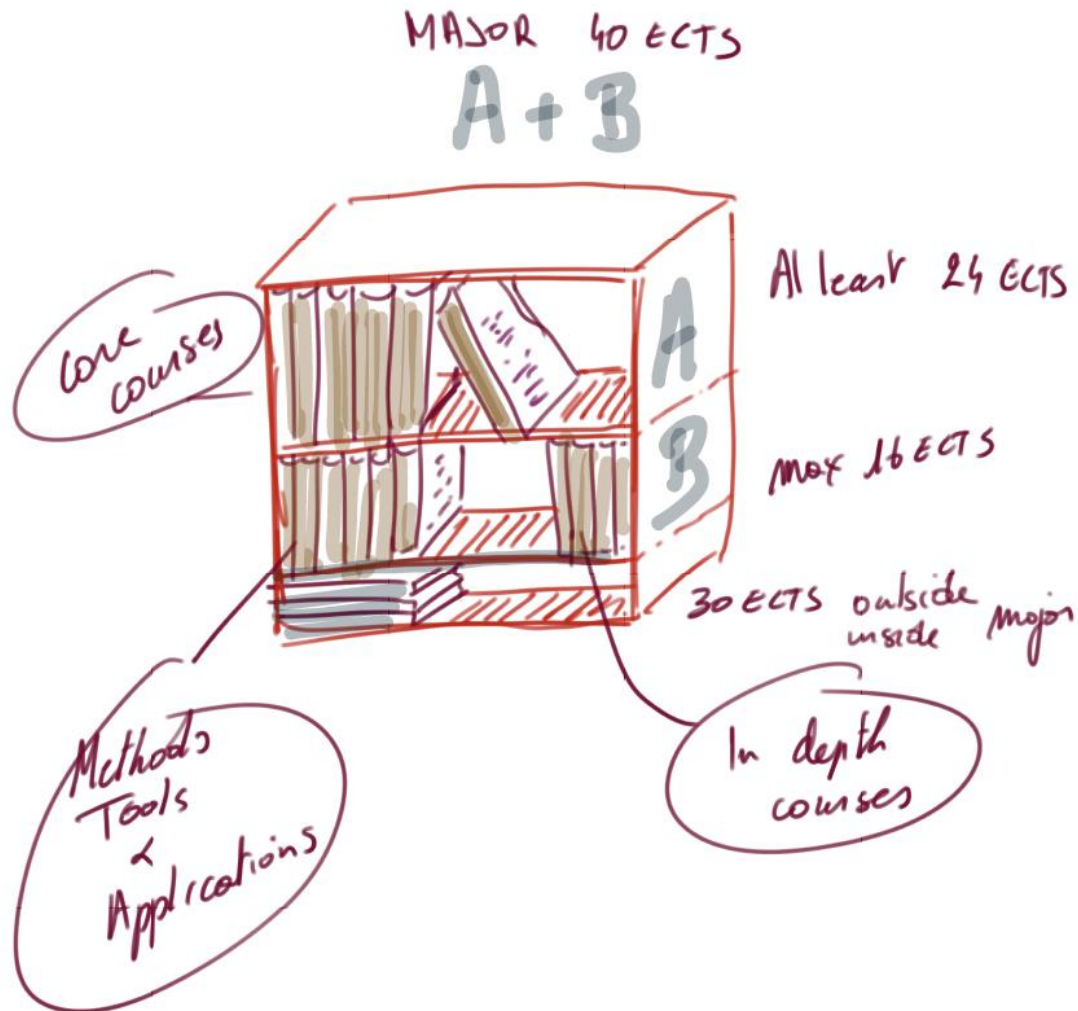 MAJOR 40 ECTS
A + B
At least 24 ECTS
A
Core
courses
B
max 16 ECTS
30 ECTS outside
inside major
Methods
Tools
&
Applications
In depth
courses